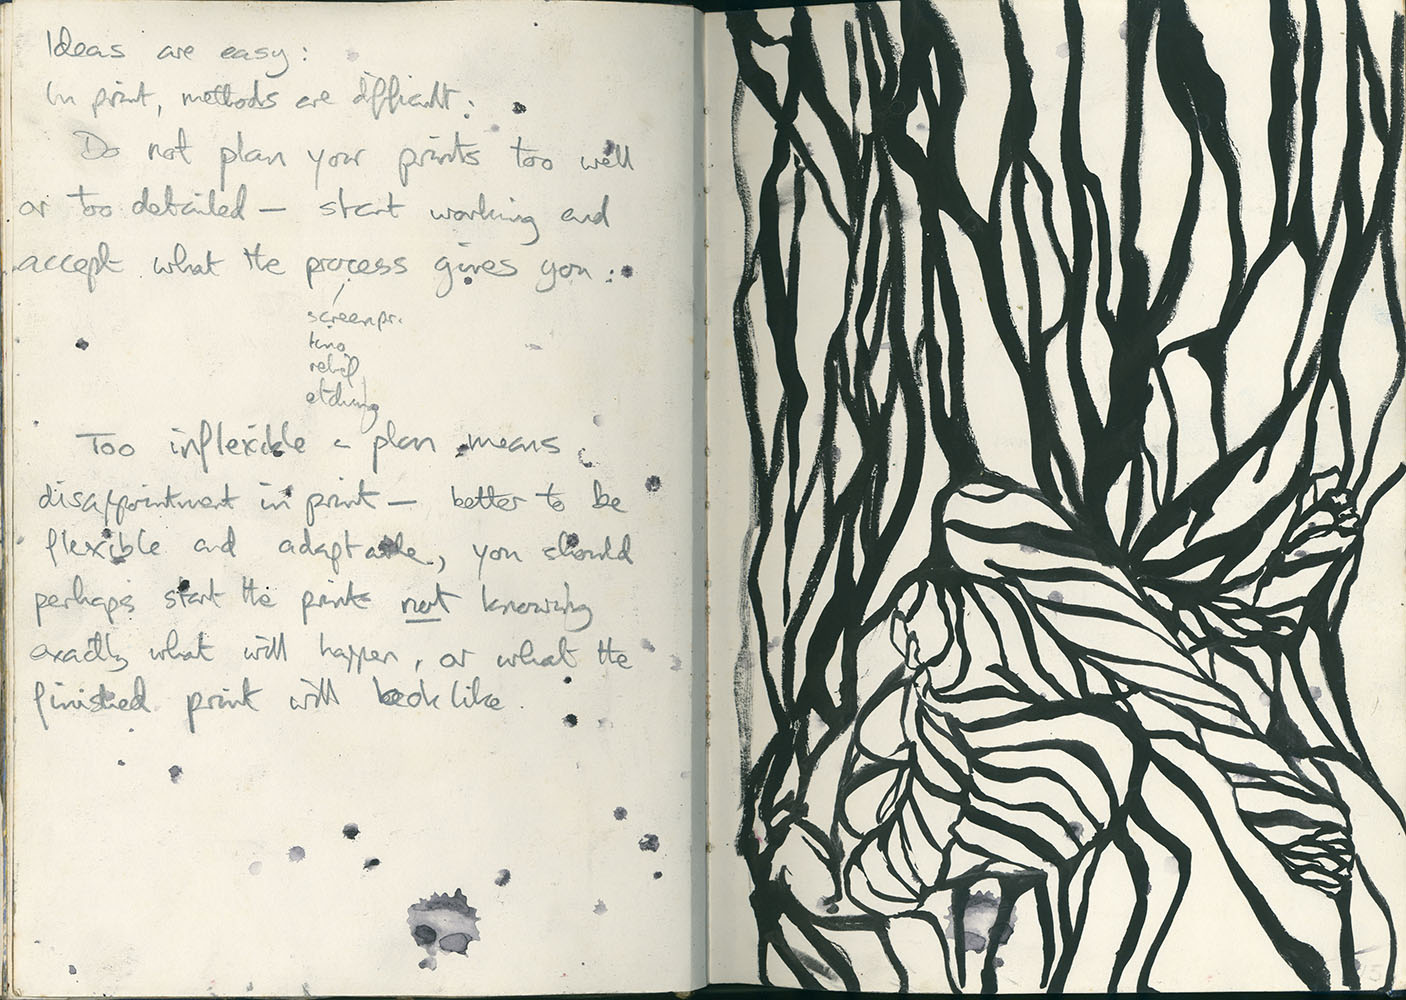 Ideas are easy:
In print, methods are difficult:
Do not plan your prints too well
or too detailed — start working and
accept what the process gives you:
screenpr.
lino
relief
etching
Too inflexible a plan means
disappointment in print — better to be
flexible and adaptable, you should
perhaps start the print not knowing
exactly what will happen, or what the
finished print will look like.